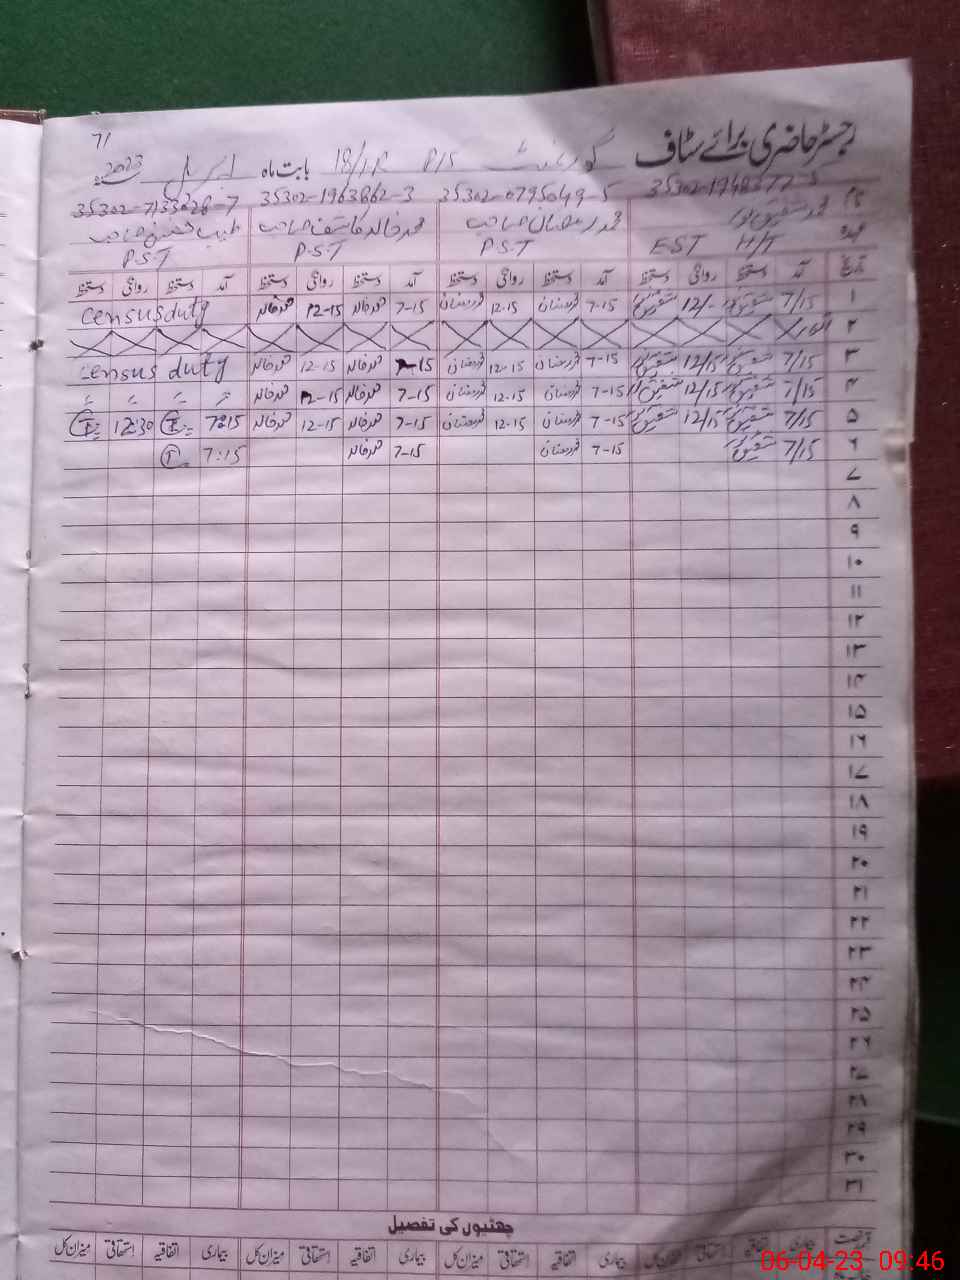 71
رجسٹر حاضری برائے سٹاف گورنمنٹ P/S 18/1R بابت ماہ اپریل 2023ء
نام 35302-1963862-3 35302-0795049-5
محمد رمضان صاحب محمد خالد صاحب
عہدہ EST H/T P.S.T P.S.T P.S.T
تاریخ آمد دستخط روانگی دستخط آمد دستخط روانگی دستخط آمد دستخط روانگی دستخط آمد دستخط روانگی دستخط
۱ 7/15 شفیق 12/- شفیق 7-15 محمد رمضان 12-15 محمد رمضان 7-15 محمد خالد 12-15 محمد خالد census duty
۲ اتوار
۳ 7/15 شفیق 12/15 شفیق 7-15 محمد رمضان 12-15 محمد رمضان 7-15 محمد خالد 12-15 محمد خالد census duty
۴ 7/15 شفیق 12/15 شفیق 7-15 محمد رمضان 12-15 محمد رمضان 7-15 محمد خالد 12-15 محمد خالد
۵ 7/15 شفیق 12/15 شفیق 7-15 محمد رمضان 12-15 محمد رمضان 7-15 محمد خالد 12-15 محمد خالد 7:15 12:30
۶ 7/15 شفیق 7-15 محمد رمضان 7-15 محمد خالد 7:15
۷
۸
۹
۱۰
۱۱
۱۲
۱۳
۱۴
۱۵
۱۶
۱۷
۱۸
۱۹
۲۰
۲۱
۲۲
۲۳
۲۴
۲۵
۲۶
۲۷
۲۸
۲۹
۳۰
۳۱
چھٹیوں کی تفصیل
بیماری اتفاقیہ استحقاقی میزان کل بیماری اتفاقیہ استحقاقی میزان کل بیماری اتفاقیہ استحقاقی میزان کل بیماری اتفاقیہ استحقاقی میزان کل
06-04-23 09:46